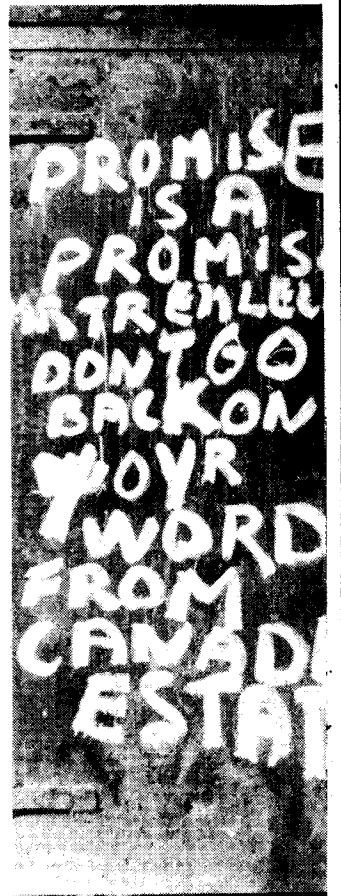 PROMISE
IS A
PROMIS
DONT GO
BACK ON
YOUR
WORD
FROM
CANADA
ESTAT